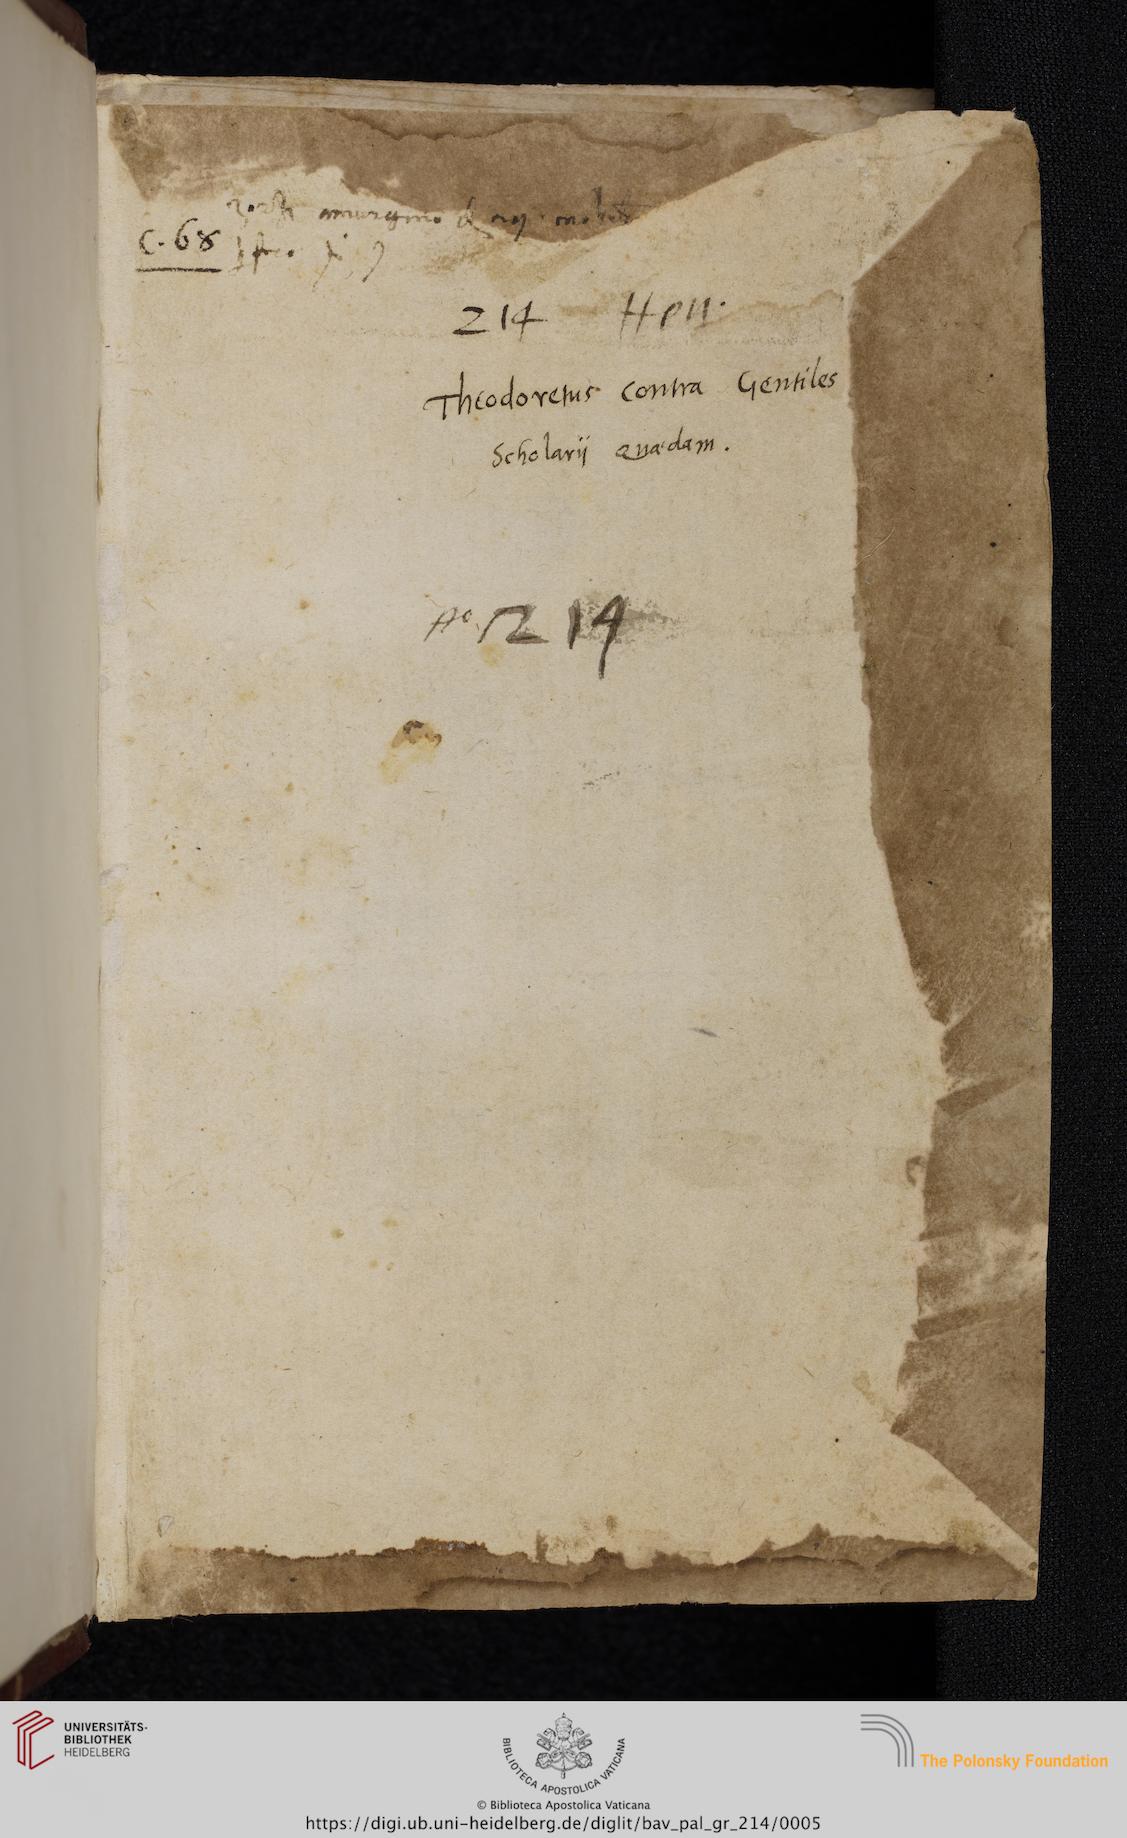 C. 68
214 Hen.
Theodoretus contra Gentiles
Scholarij quædam.
214
UNIVERSITÄTS-
BIBLIOTHEK
HEIDELBERG
BIBLIOTECA APOSTOLICA VATICANA
The Polonsky Foundation
© Biblioteca Apostolica Vaticana
https://digi.ub.uni-heidelberg.de/diglit/bav_pal_gr_214/0005